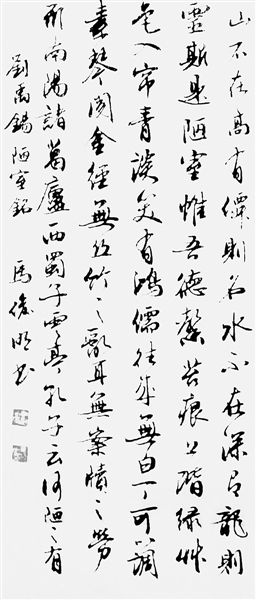 山不在高有僊則名水不在深有龍則
靈斯是陋室惟吾德馨苔痕上階緑艸
色入帘青談笑有鴻儒往來無白丁可以調
素琴閲金經無丝竹之亂耳無案牘之勞
形南陽諸葛廬西蜀子雲亭孔子云何陋之有
劉禹錫陋室銘 馬俊明书